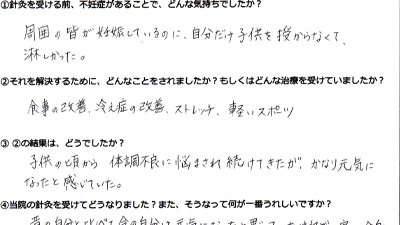 ①針灸を受ける前、不妊症があることで、どんな気持ちでしたか?
周囲の皆が妊娠しているのに、自分だけ子供を授からなくて、
淋しかった。
②それを解決するために、どんなことをされましたか?もしくはどんな治療を受けていましたか?
食事の改善、冷え症の改善、ストレッチ、軽いスポーツ
③ ②の結果は、どうでしたか?
子供の頃から 体調不良に悩まされ続けてきたが、かなり元気に
なったと感じていた。
④当院の針灸を受けてどうなりました?また、そうなって何が一番うれしいですか?